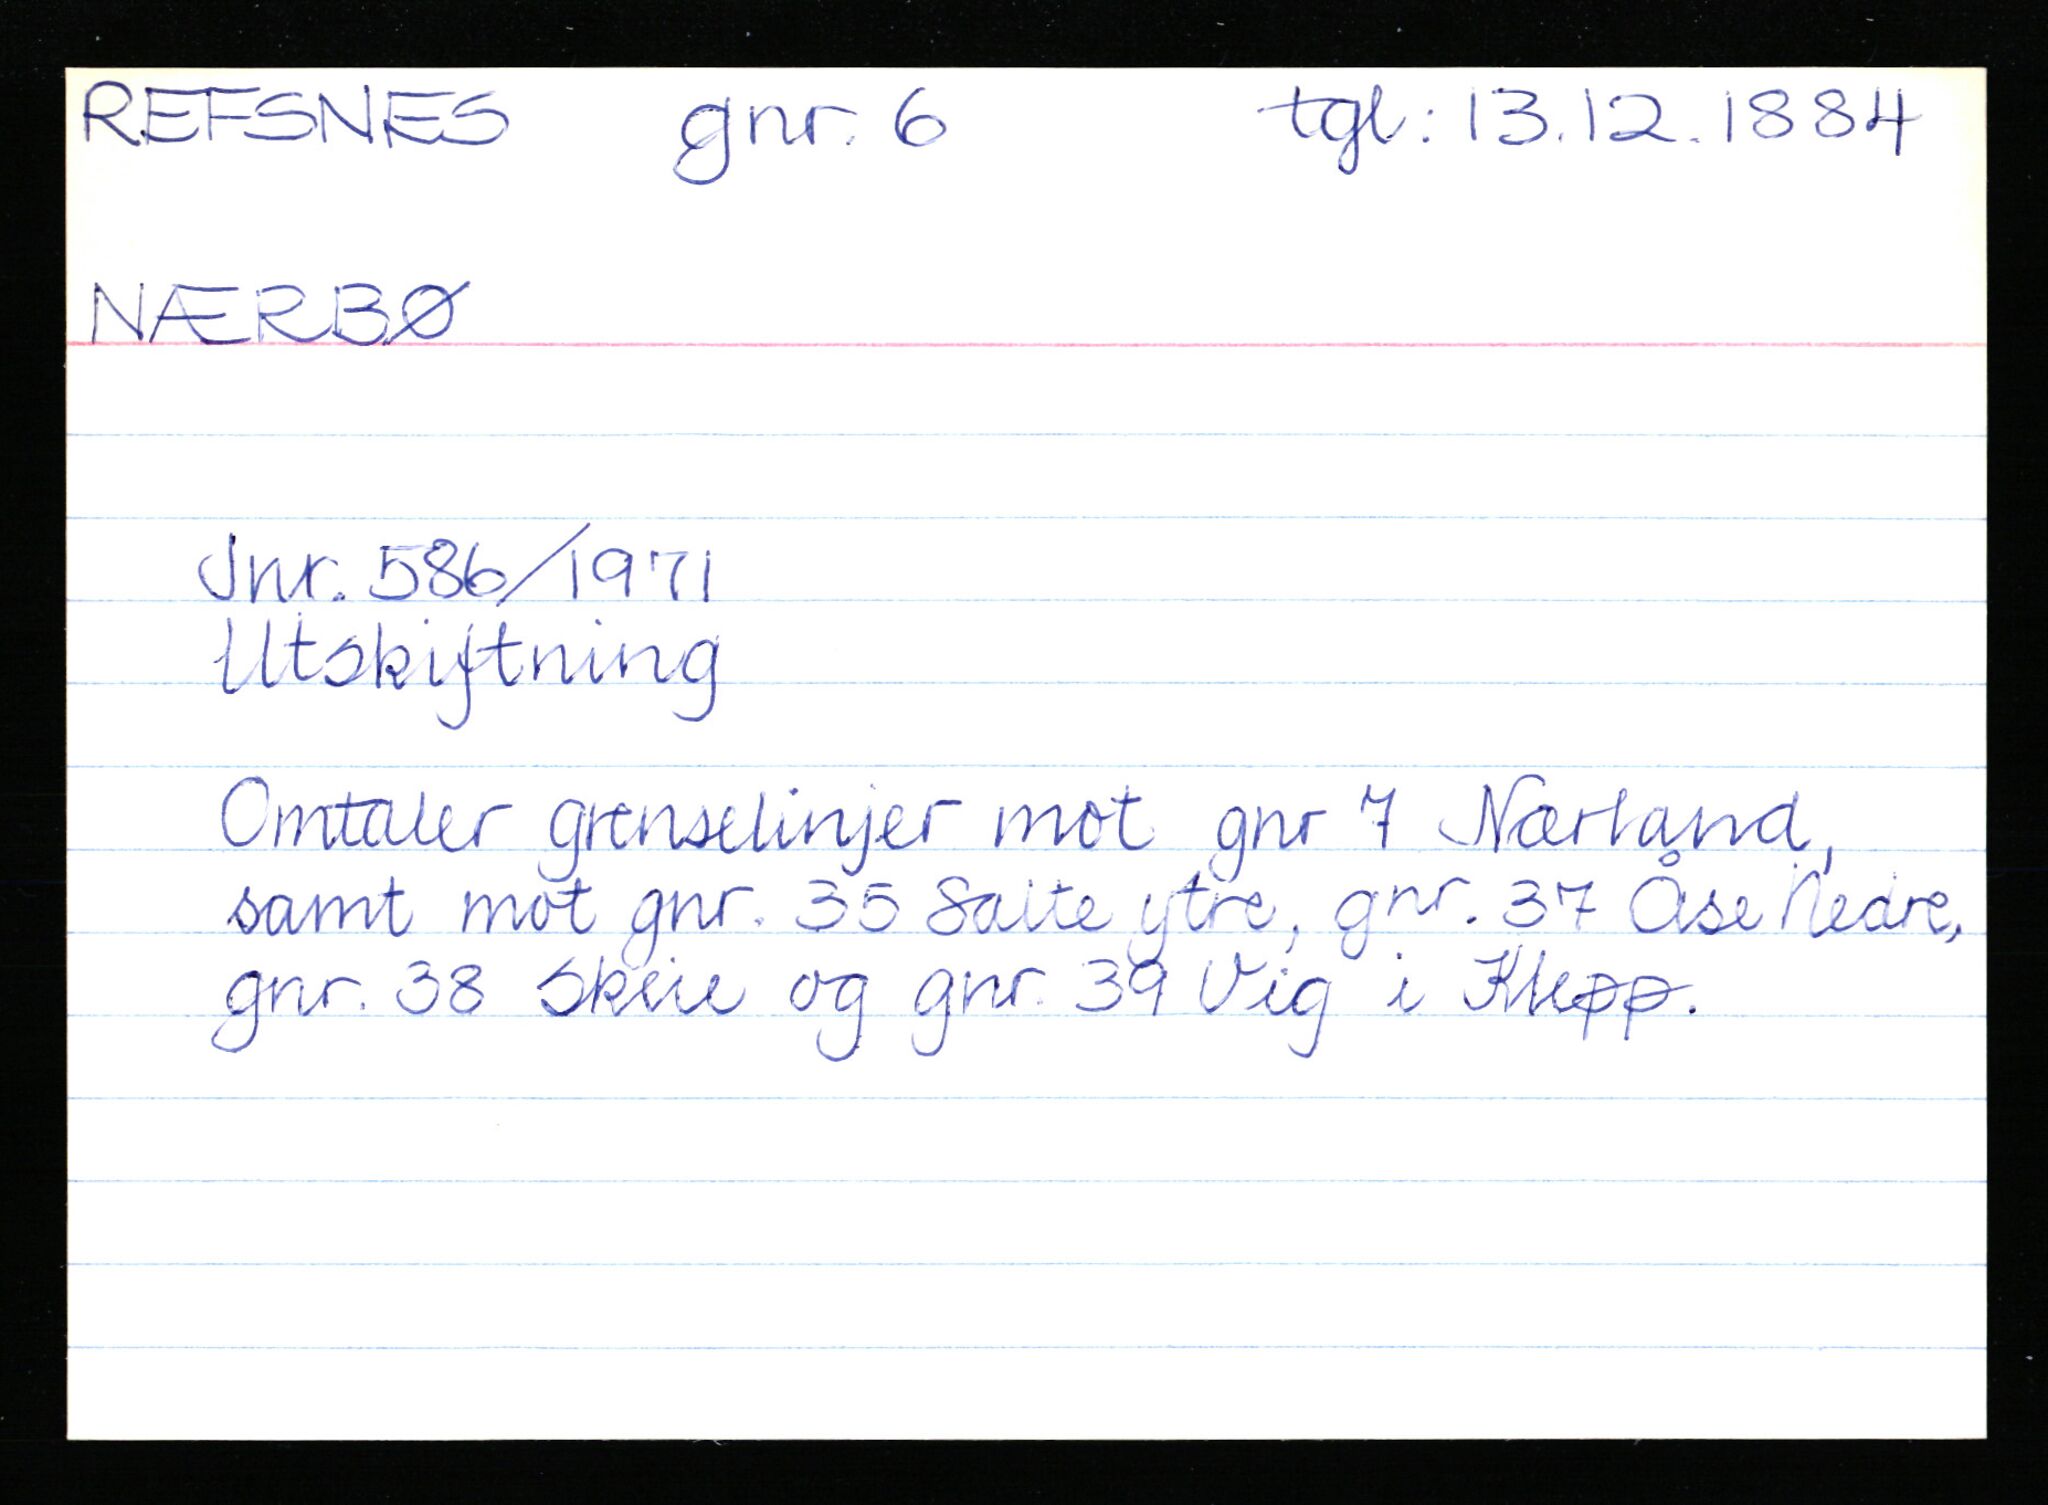 REFSNES gnr. 6 tgl: 13.12.1884
NÆRBØ
Jnr. 586/1971
Utskiftning
Omtaler grenselinjer mot gnr 7 Nærland,
samt mot gnr. 35 Salte ytre, gnr. 37 Åse Nedre,
gnr. 38 Skeie og gnr. 39 Vig i Klepp.